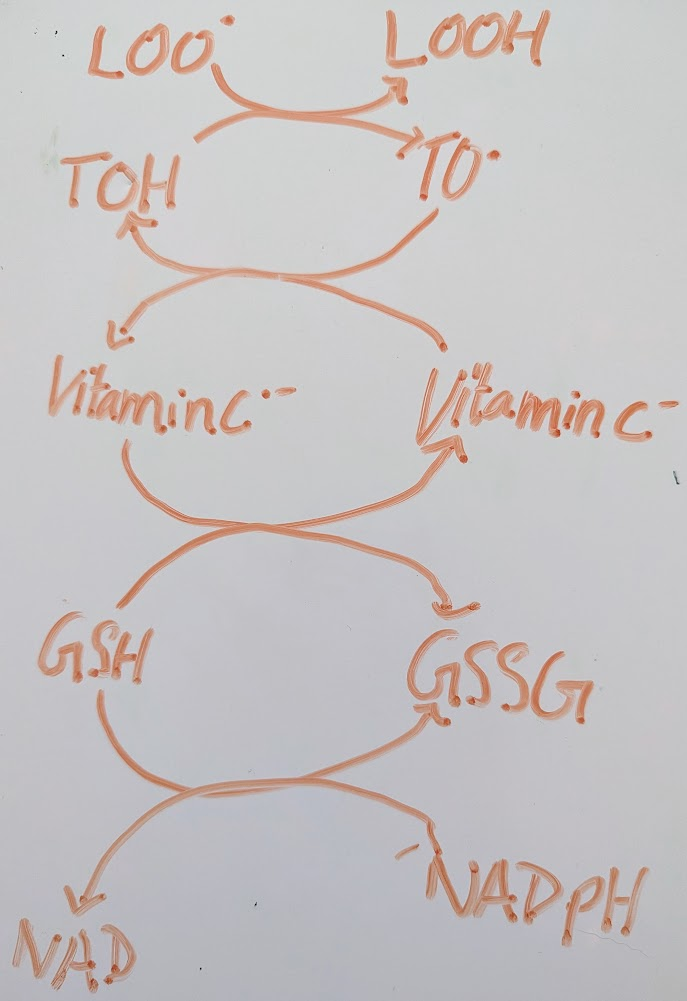 LOO• LOOH
TOH TO•
Vitamin C•- Vitamin C-
GSH GSSG
NADPH
NAD